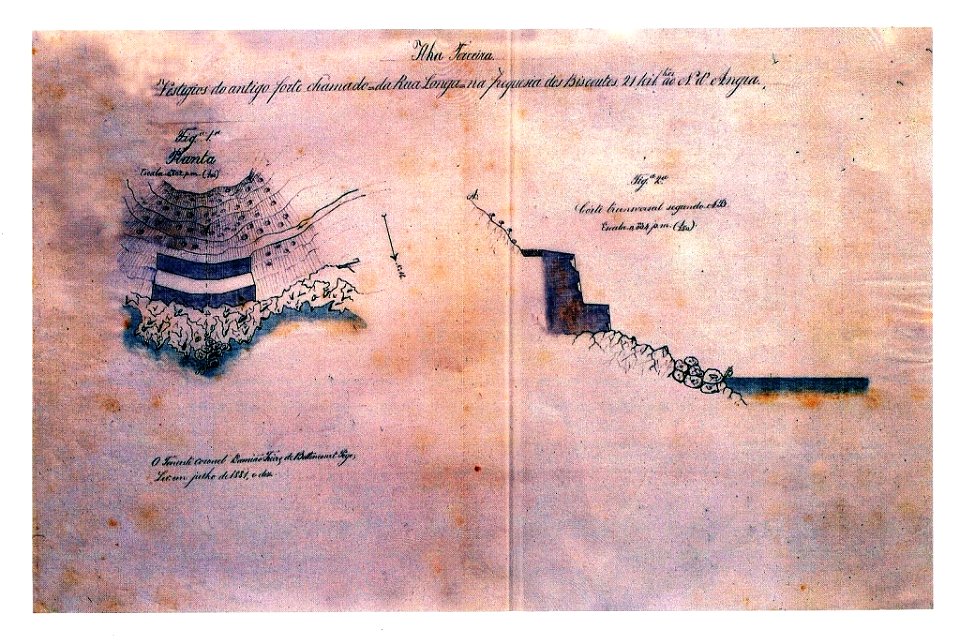 Ilha Terceira.
Vestigios do antigo forte chamado = da Rua Longa = na Freguesia dos Biscoutos, 21 kil. ao N. d'Angra.
Fig.ª 1.ª
Planta
Escala p.m.
Fig.ª 2.ª
Corte transversal segundo AB
Escala p.m.
A
O Tenente Coronel Damião de Bettencourt
em julho de 1881, o des.